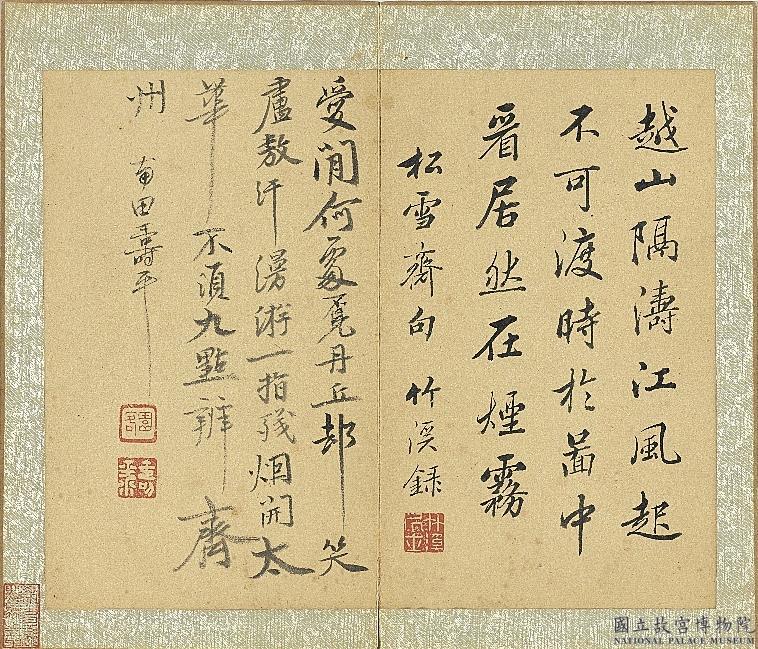 越山隔濤江風起
不可渡時於啚中
看居然在煙霧
松雪齋句 竹溪錄
受閒何處覓丹丘却笑
盧敖汗漫游一指殘烟開太
華不須九點辨齊
州 甫田壽平
國立故宮博物院
NATIONAL PALACE MUSEUM